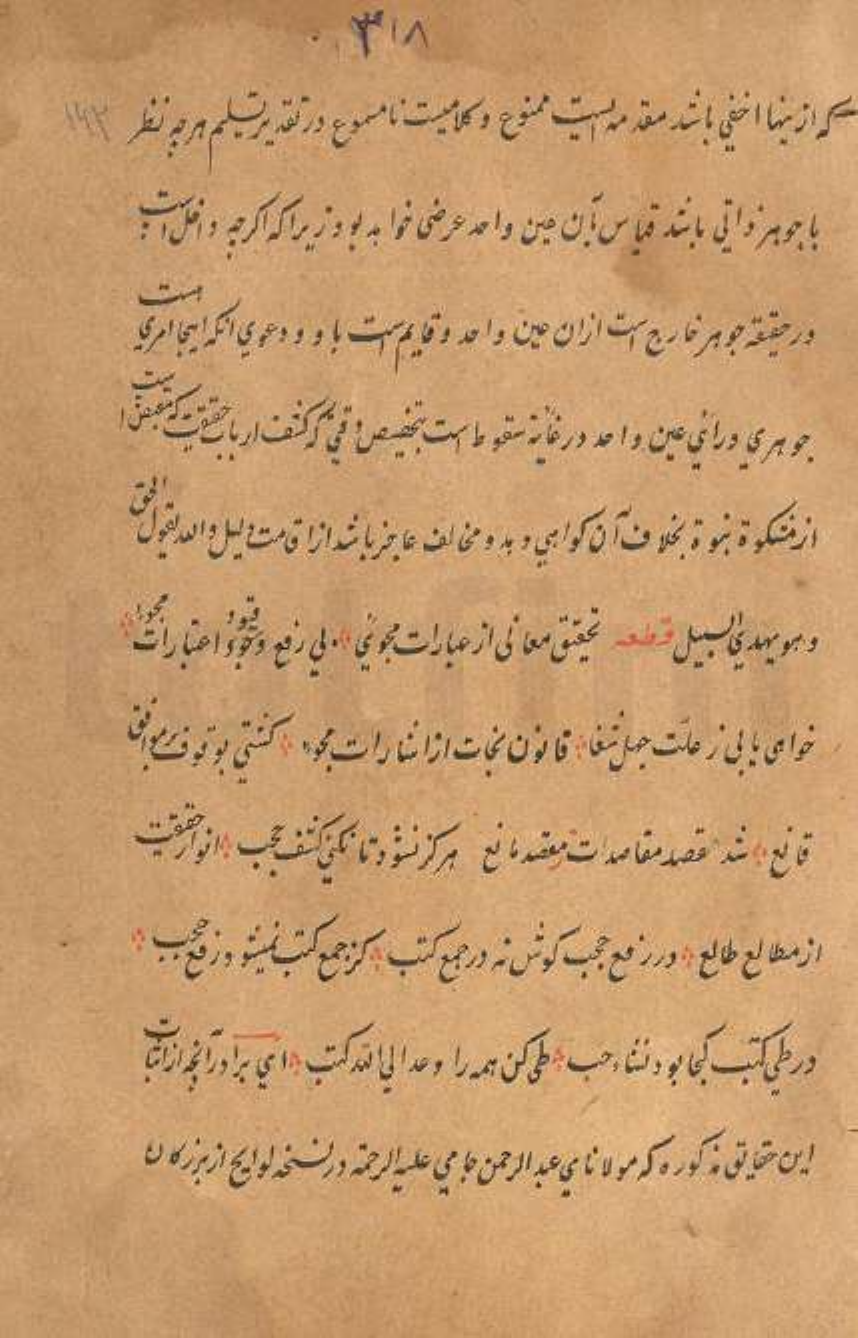 ۳۱۸
۱۴۳
که ازینها اخفی باشد مقدمه ایست ممنوع و کلامیست نامسموع در تقدیر تسلیم هرچه نظر
با جوهر ذاتی باشد قیاس بآن عین واحد عرضی خواهد بود زیرا که اکرچه داخل است
در حقیقة جوهر خارج است ازان عین واحد و قایم است باو و دعوی انکه اینجا امری هست
جوهری ورائی عین واحد در غایة سقوط است بتخصیص وقتی که کشف ارباب حقیقت که مقتبس است
از مشکوة نبوة بخلاف آن کواهی دهد و مخالف عاجز باشد از اقامت دلیل والله یقول الحق
وهو یهدی السبیل قطعه تحقیق معانی از عبارات مجوی بی رفع قیود و اعتبارات مجوی
خواهی یابی ز علت جهل شفا قانون نجات از اشارات مجوی کشتی بوقوف بر مواقف
قانع شد قصد مقاصدت ز مقصد مانع هرکز نشود تا نکنی کشف حجب انوار حقیقت
از مطالع طالع در رفع حجب کوش نه در جمع کتب کز جمع کتب نمیشود رفع حجب
در طی کتب کجا بود نشاء حب طی کن همه را وعد الی الله کتب ای برادر آنچه از اثبات
این حقایق مذکوره که مولانای عبد الرحمن جامی علیه الرحمة در نسخه لوایح از بزرکان